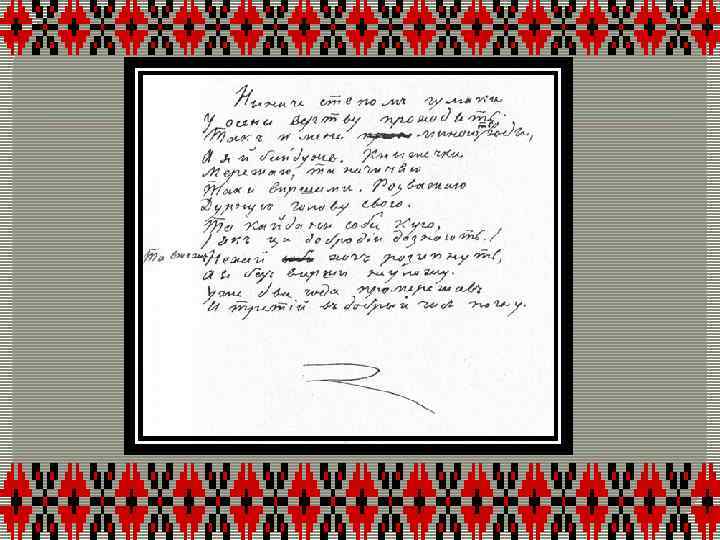 Ниначе степомъ чумаки
У осени верству проходять.
Такъ и мене минають годы,
А я й байдуже. Книжечки
Мережаю, та начиняю
Таки виршами. Розважаю
Дурную голову свою.
Та кайданы соби кую,
Якъ ци добродіи дознають!
Та вже жъ Нехай хочъ розипнуть,
А я безъ вирши неулежу.
Уже два года промережавъ
И третій въ добрый часъ почну.